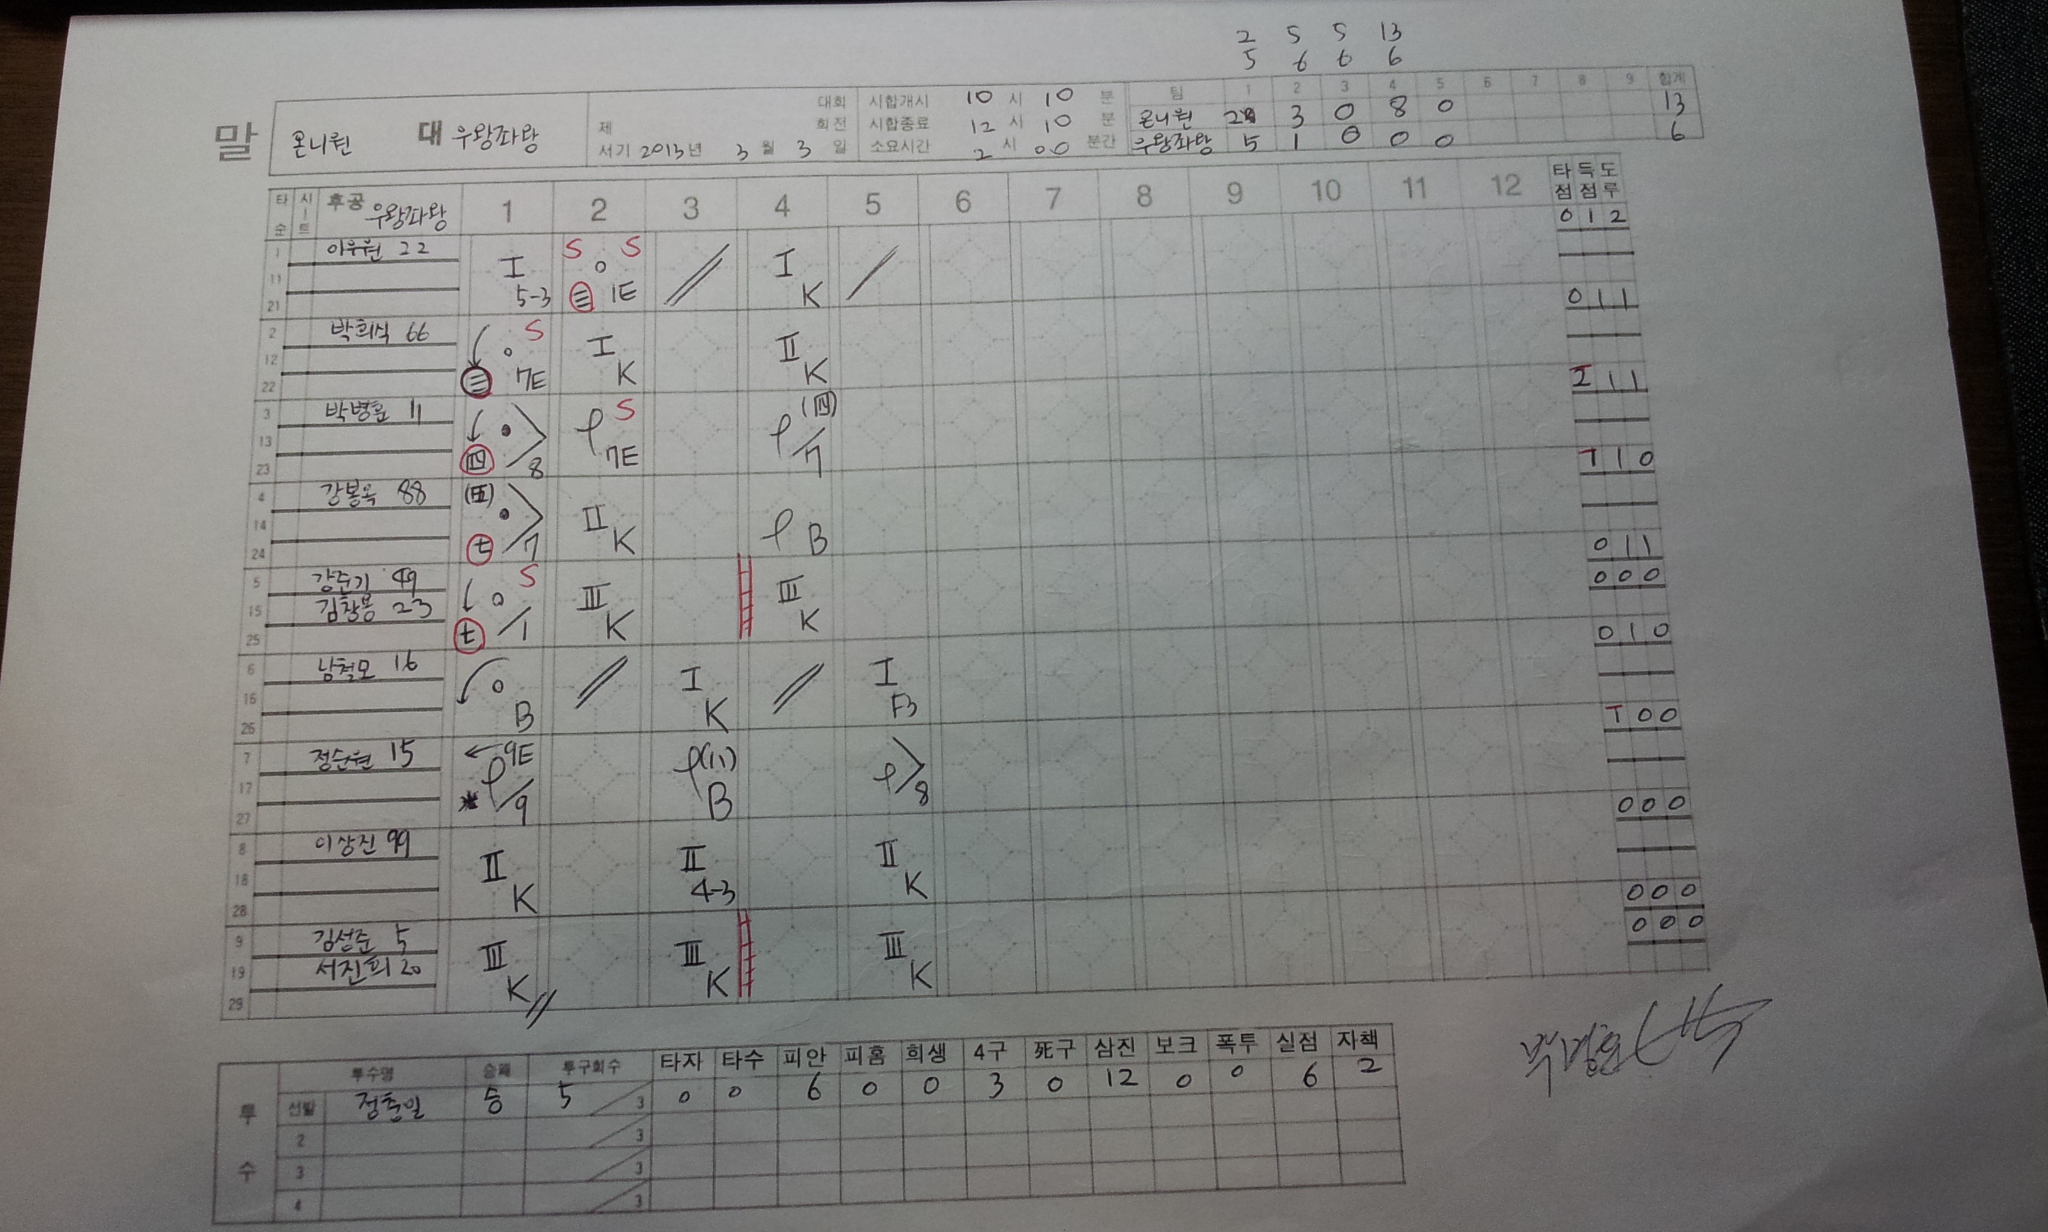 2 5 5 13
5 6 6 6
말 온니원 대 우왕좌왕
제 대회
회전
서기 2013년 3월 3일
시합개시 10시 10분
시합종료 12시 10분
소요시간 2시 00분간
팀 1 2 3 4 5 6 7 8 9 합계
온니원 2 3 0 8 0 13
우왕좌왕 5 1 0 0 0 6
타순 시트 후공 우왕좌왕 1 2 3 4 5 6 7 8 9 10 11 12 타점 득점 도루
0 1 2
1 22 I 5-3 S S 1E I K
11
21 0 1 1
2 박희식 66 S 7E I K II K
12
22 1 1
3 박병훈 11 四 8 S 7E (四) 7
13
23 1 0
4 강봉옥 88 (五) 七 7 II K B
14
24 0 1 1
5 강준기 49 S 1 III K III K 0 0 0
15 김창용 23 七
25 0 1 0
6 남철모 16 B I K I F3
16
26 0 0
7 정순원 15 9E 9 (11) B 8
17
27 0 0 0
8 이상진 99 II K II 4-3 II K
18
28 0 0 0
9 김성준 5 III K III K III K 0 0 0
19 서진희 20
29
투수 투수명 승패 투구회수 타자 타수 피안 피홈 희생 4구 死구 삼진 보크 폭투 실점 자책
선발 정춘일 승 5 /3 0 0 6 0 0 3 0 12 0 0 6 2
2 /3
3 /3
4 /3